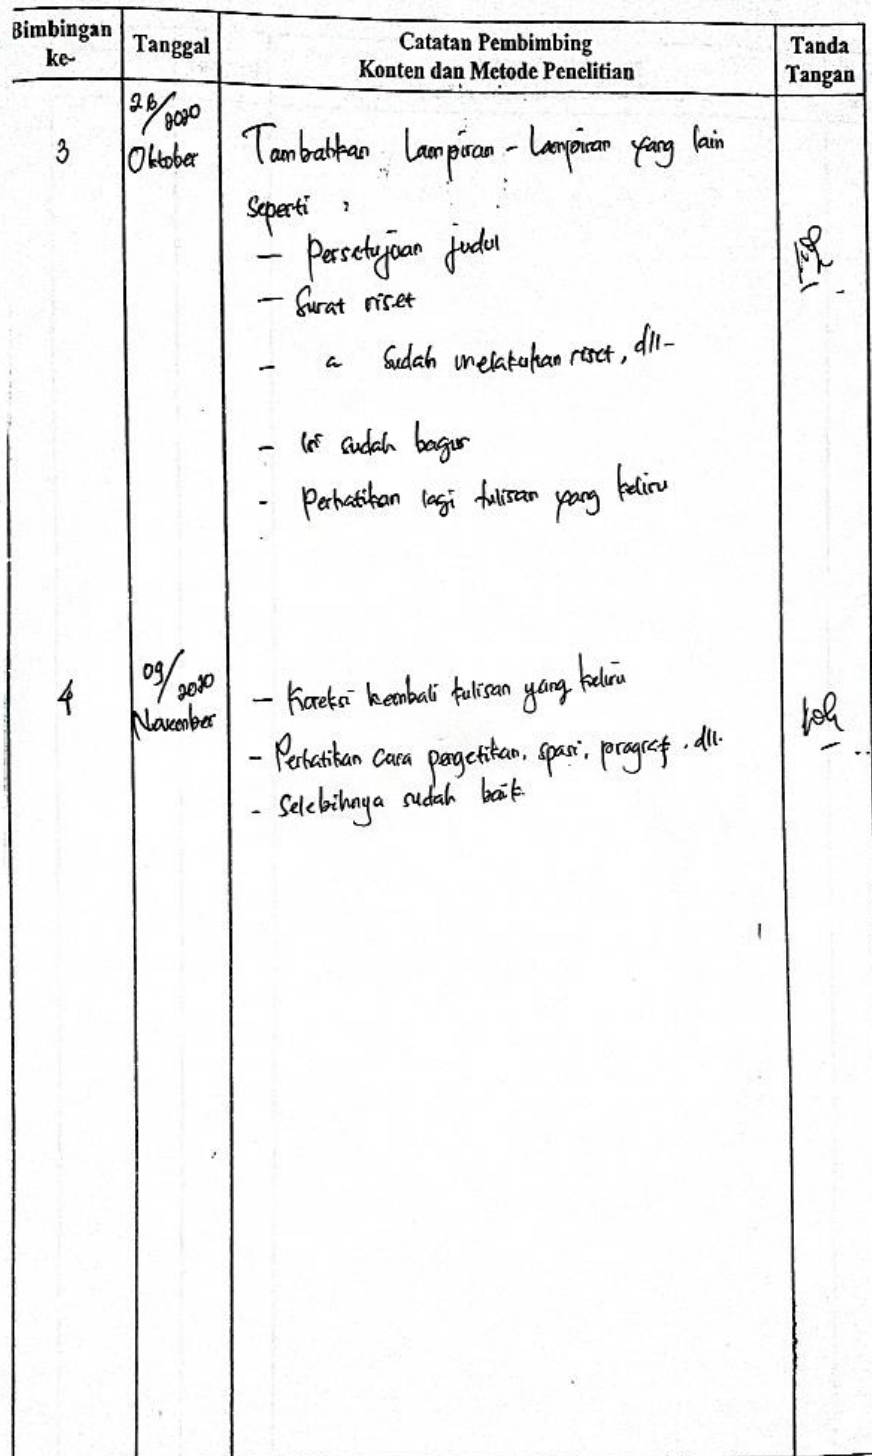 Bimbingan ke-
Tanggal
Catatan Pembimbing
Konten dan Metode Penelitian
Tanda Tangan
3
28/2020
Oktober
Tambahkan Lampiran - Lampiran yang lain
Seperti :
- Persetujuan judul
- Surat riset
- sudah melakukan riset, dll-
- Isi sudah bagus
- Perhatikan lagi tulisan yang keliru
4
09/2020
November
- Koreksi kembali tulisan yang keliru
- Perhatikan Cara pengetikan, spasi, pragraf. dll.
- Selebihnya sudah baik